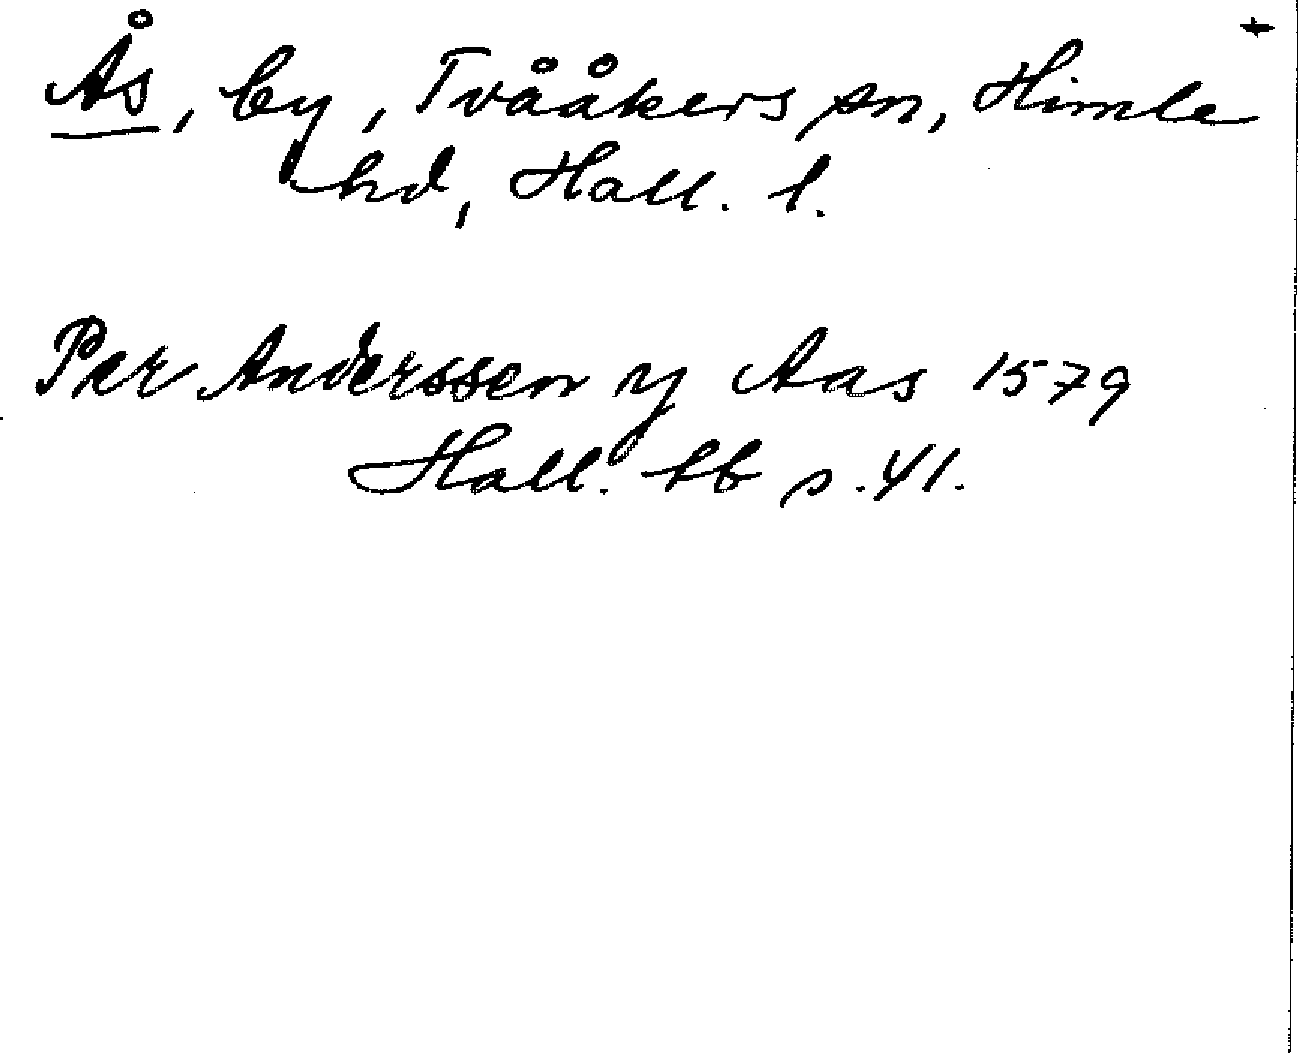 Ås, by, Tvååkers sn, Himle +
hd, Hall. l.
Per Anderssen y Aas 1579
Hall. lb s. 41.